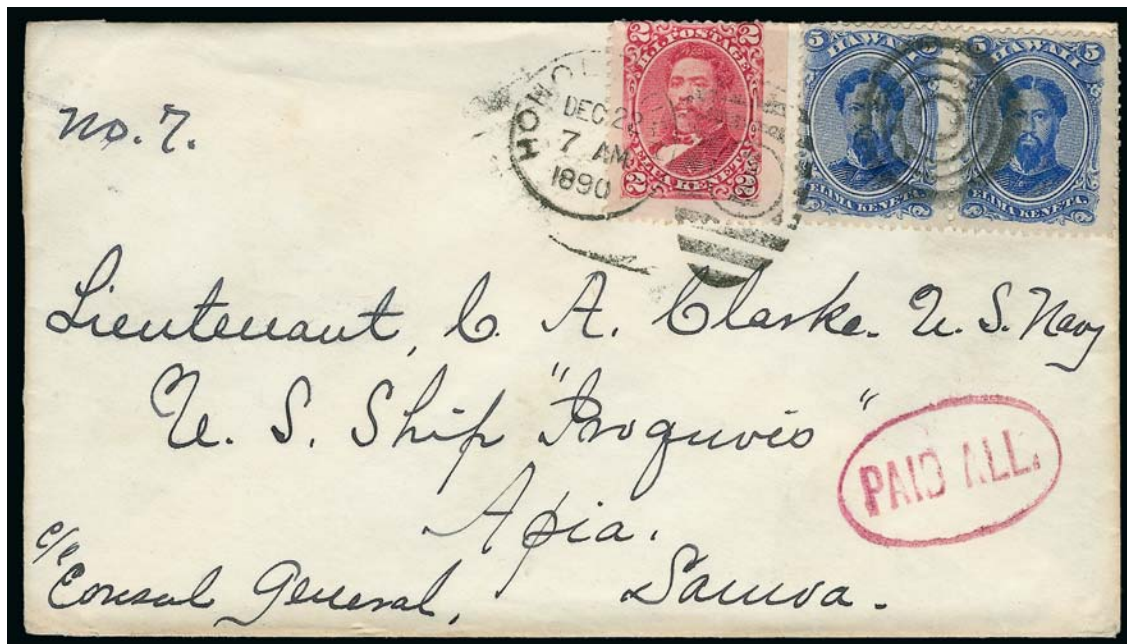 No. 7.
HONOL
DEC 22
7 AM
1890
2 2
H.I. POSTAGE
ELUA KENETA
2 2
5 HAWAII 5
ELIMA KENETA.
5 HAWAII 5
ELIMA KENETA.
Lieutenant, C. A. Clarke. U. S. Navy
U. S. Ship "Iroquois"
Apia.
Samoa.
c/o
Consul General,
PAID ALL.